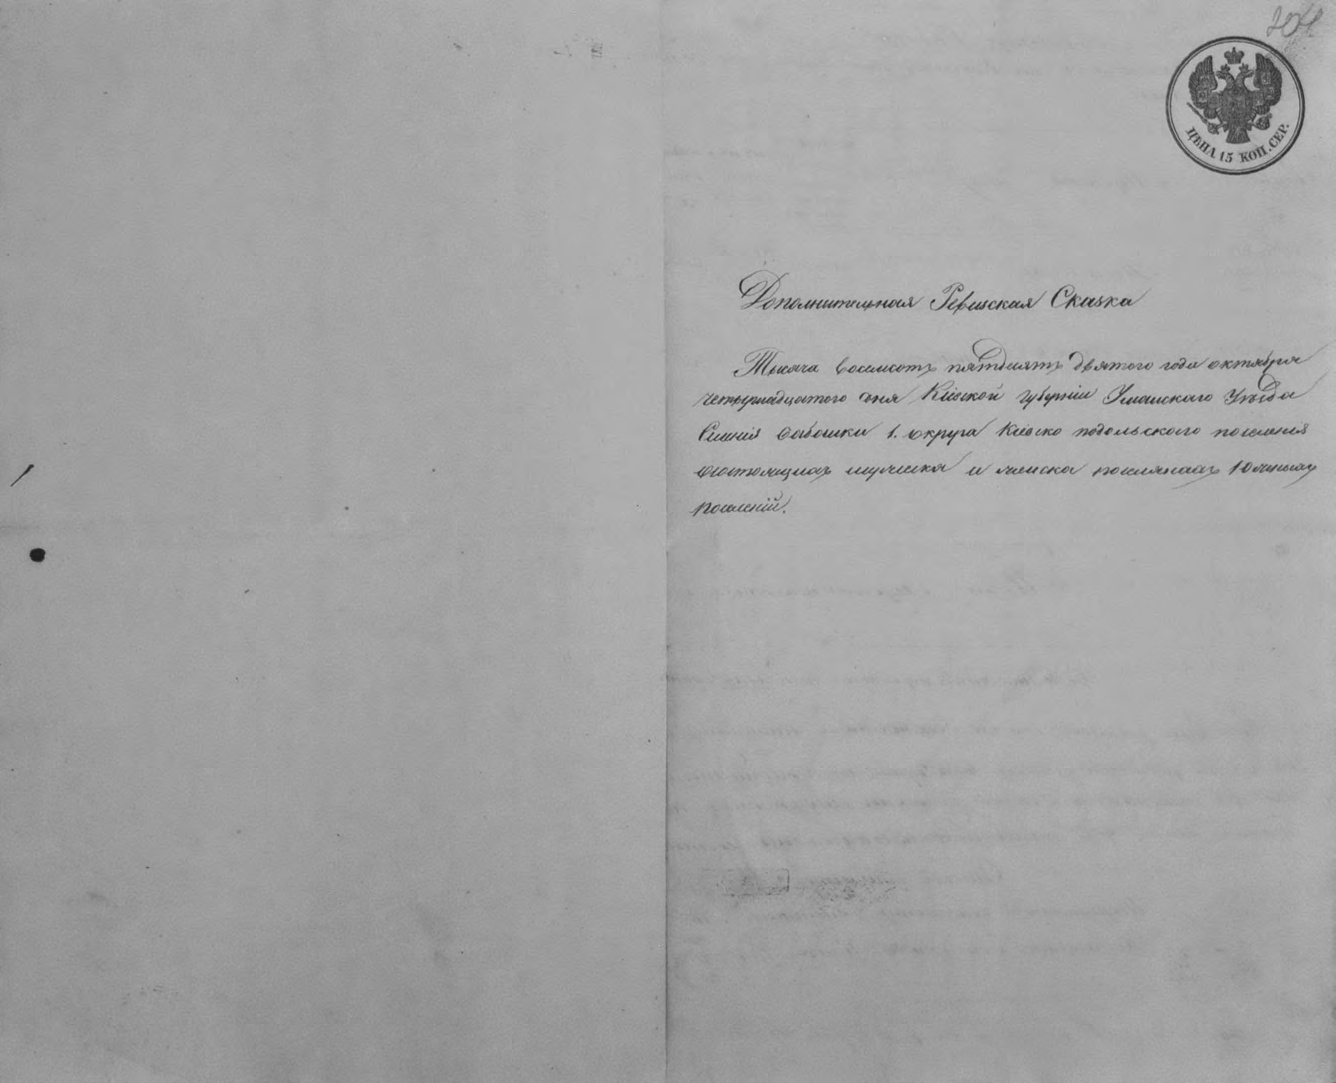 ЦѢНА 15 КОП. СЕР.
Дополнительная Ревизская Сказка
Тысяча восемсотъ пятдесятъ девятого года октября
четырнадцатого дня Кіевской губерніи Уманскаго Уѣзда
Селенія Бабанки 1. округа Кіево подольского поселенія
состоящихъ мужеска и женска поселянахъ Южныхъ
поселеній.